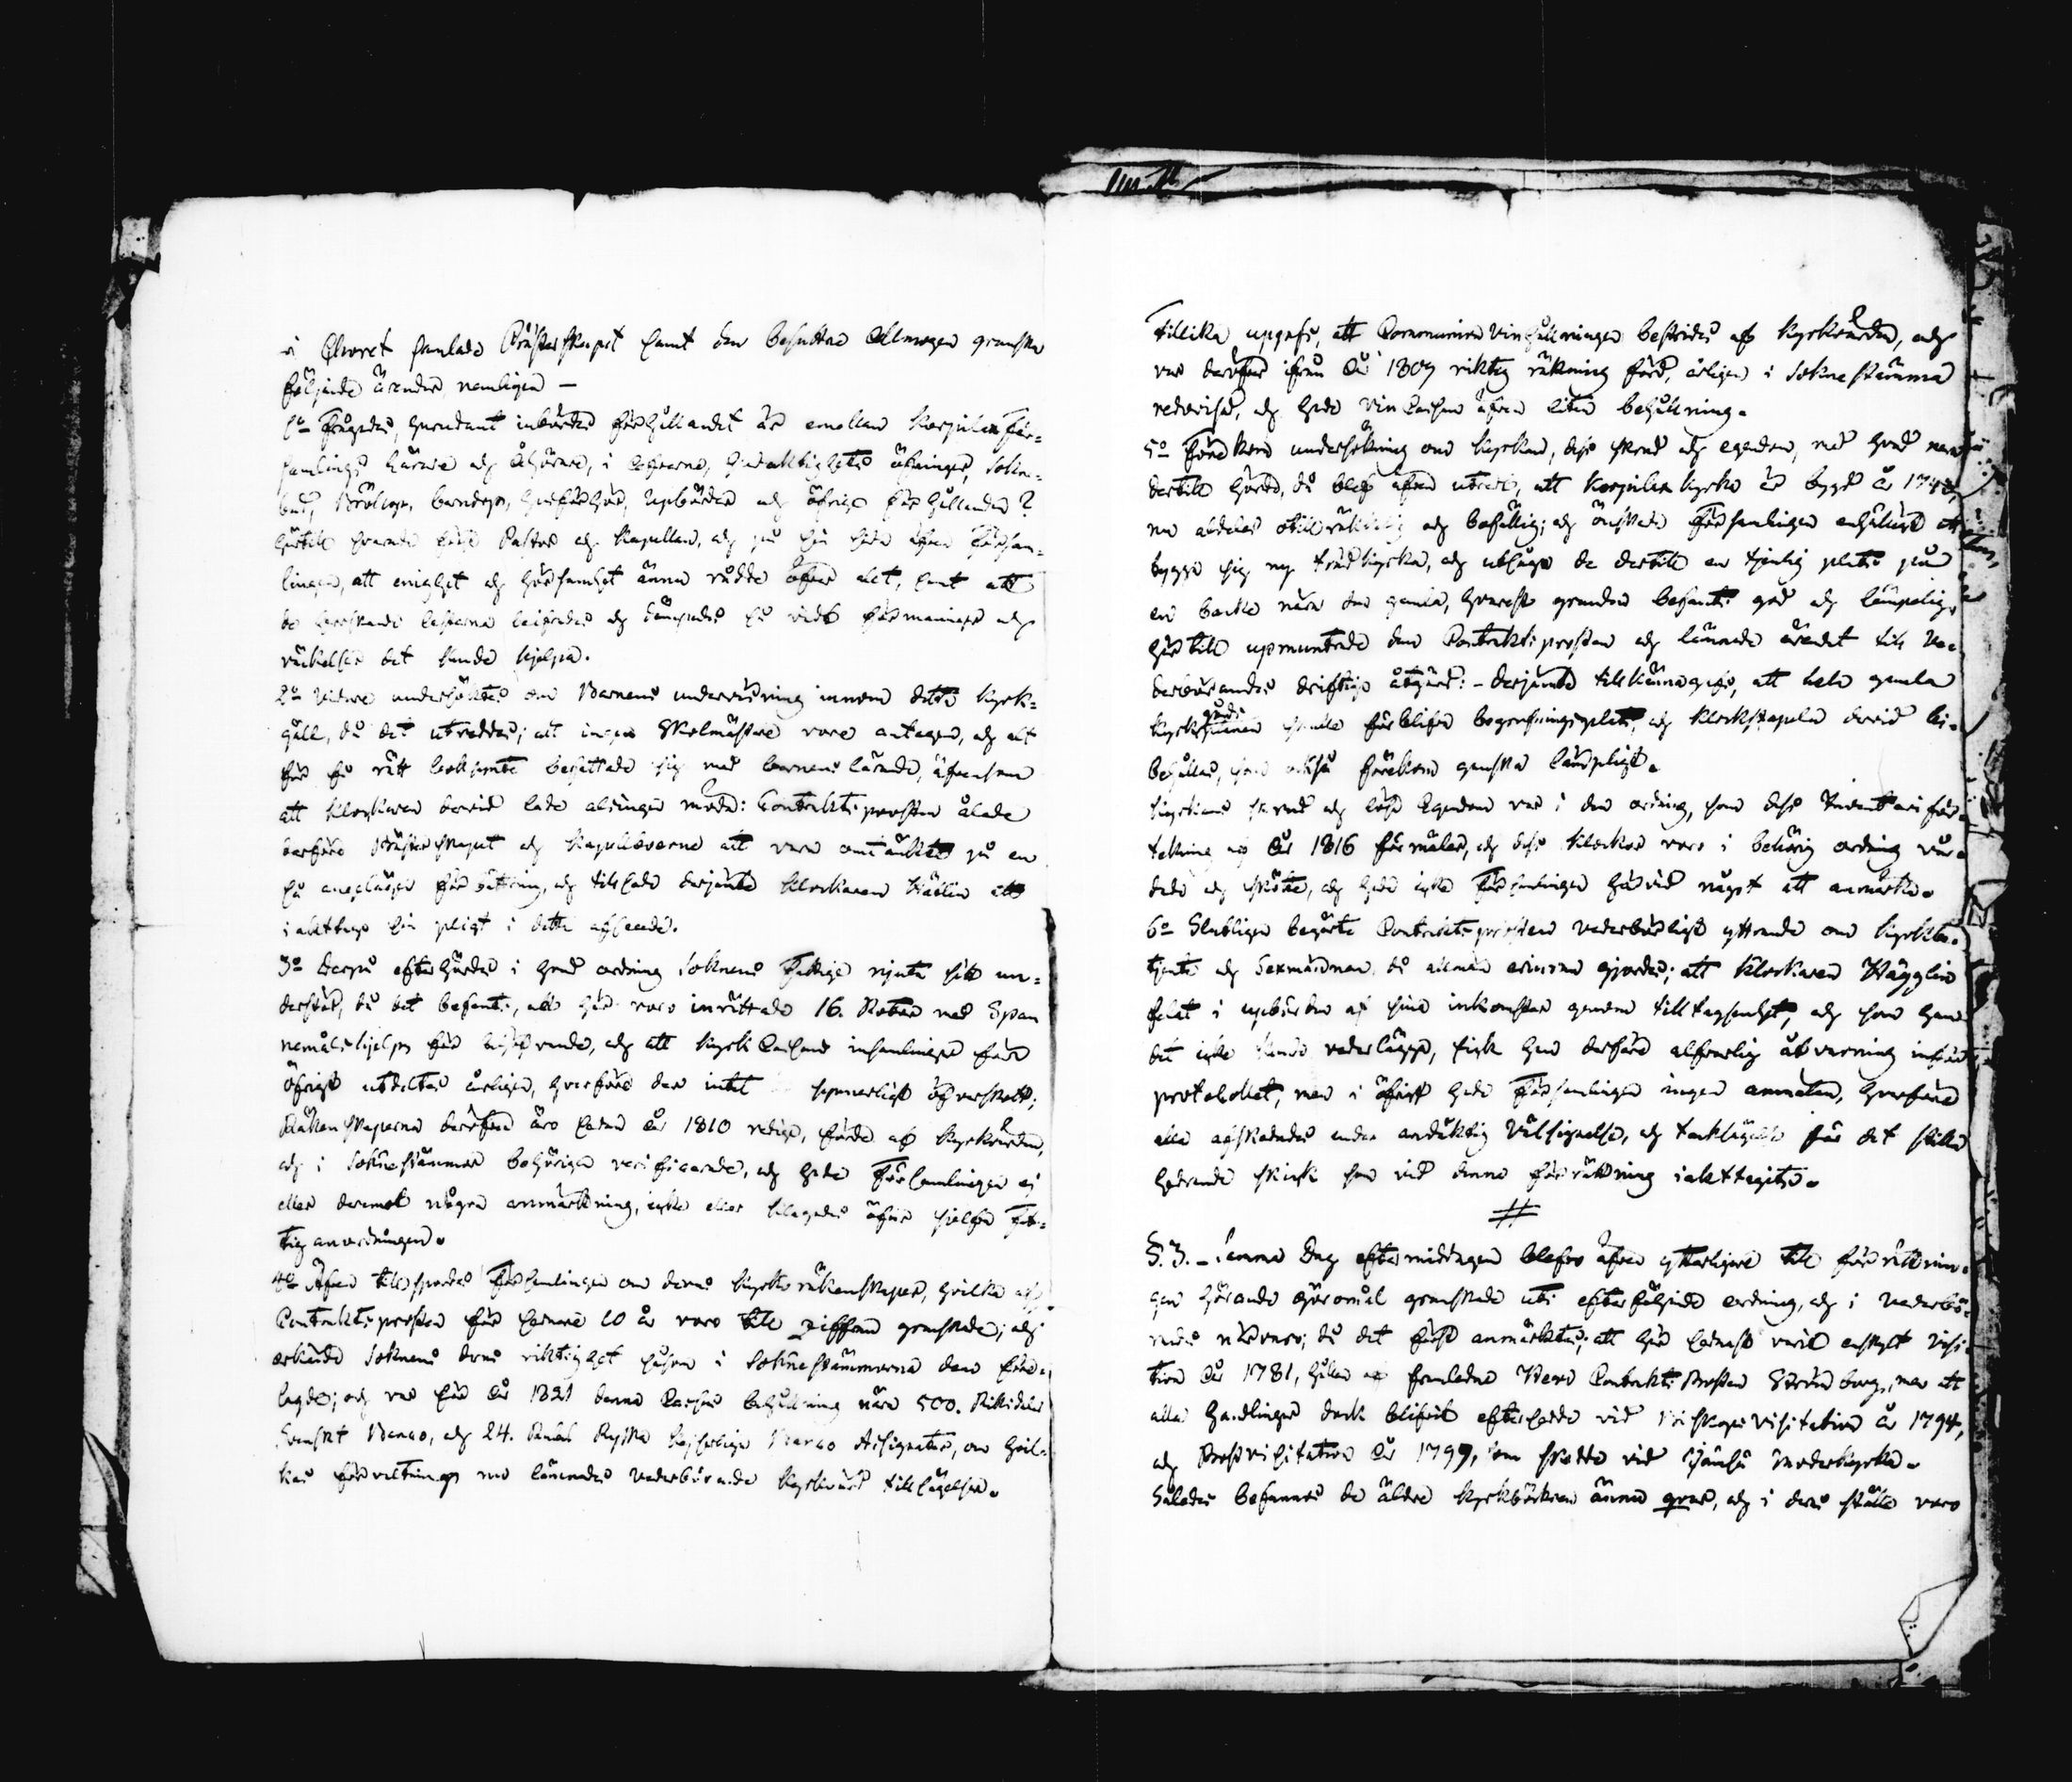 i Choret samlade Prästerskapet samt den besuttne Allmogen granska
följande ärender nemligen —
1º Frågades, hurudant inbördes förhållandet är emellan Korpilax För-
samlings lärare och Åhörare, i lefverne, Gudaktighets öfningar, Sokne-
bud, Bröllop, barndop, husförhör, Upbörder och öfrige förhållanden?
härtill svarade både Pastor och Kapellan, och på sin sida äfven Försam-
lingen, att enighet och hörsamhet ännu rådde öfver alt, samt att
de herskande lasterna beifrades och dämpades så vidt förmaningar och
räfselser det kunde hjelpa.
2º Vidare undersöktes om Barnens undervisning innom detta Kyrk-
gäll, då det utreddes; att ingen Skolmästare vore antagen, och alt
för få rätt bokkunnte befattade sig med barnens lärande, äfvensom
att Klockaren dervid lade alsingen möda: Contraktsprosten ålade
derföre Prästerskapet och Kapelboerne att vara omtänkte på en
så angelägen förbättring, och tillsade derjämte Klockaren Häglin att
iakttaga sin pligt i detta afseende.
3º Derpå efterhördes i hvad ordning Soknens Fattige njuta sitt un-
derstöd, då det befants, att här voro inrättade 16. Rotar med Span-
nemålshjelp för behöfvande, och att Kyrk Cassans insamlingar för
öfrigt utdeltes årligen, hvarföre der intet synnerligt öfverskott;
Räkenskaperna deröfver äro sedan År 1810 redige, förde af Kyrkvärden,
och i Soknestämmor behörigen verificerade, och hade Församlingen ej
eller deremot någon anmärkning, icke eller klagades öfver sjelfva Fat-
tig anordningen.
4º Äfven tillspordes Församlingen om deras Kyrko räkenskaper, hvilka af
Contraktsprosten för sednare 10 år voro till ziffran granskade; och
erkände Soknens deras riktighet såsom i Soknestämmorna dem före-
lagde; och var för År 1821 denna Cassas behållning nära 500. Riksdaler
Svenskt Banco, och 24. Rubel Ryska Kejserliga Banco Assignater, om hvil-
kas förvaltning nu lämnades vederbörande Kyrkvärd tillsägelser.
Tillika upgafs, att Communion Vinhållningen bestrides af Kyrkvärden, och
var deröfver ifrån År 1807 riktig räkning förd, årligen i Sokne stämma
redovisad, och hade Vin Cassan äfven liten behållning.
5º Förekom undersökning om Kyrkan, dess skrud och egendom, med hvad mera
dertill hörde, då blef äfven utredt, att Korpilax Kyrka är bygd År
nu aldeles otillräkelig och bofällig; och önskade Församlingen enhälligt att
bygga sig ny träd kyrka, och utsågo de dertill en tjenlig plats på
en backe nära den gamla, hvarest grunden befants god och lämpelig.
Här till upmuntrade dem Contraktsprosten och lämnade ärendet till Ve-
derbörandes driftiga åtgärd: — Derjämte tillkännagafs, att hela gamla
Kyrkogården skulle förblifva begrafningsplats, och Klockstapeln dervid bi-
behållas, som också förekom ganska lämpligt.
Kyrkans skrud och lösa Egendom var i den ordning, som dess Inventarii för-
tekning af År 1816 förmäler, och dess Klockor voro i behörig ordning vår-
dade och skötte, och hade icke Församlingen härvid något att anmärka.
6º Slutligen begärte Contraktsprosten vederbörligt yttrande om Kyrkbe-
tjente och Sexmännen, då allmän erinran gjordes; att Klockaren Hägglin
felat i upbörden af sina inkomster genom tilltagsenhet, och som han
det icke kunde vederlägga, fick han derföre alfvarlig åtvarning inför
protokollet; men i öfrigt hade Församlingen ingen anmälan, hvarföre
alla afskedades under andäktig Välsignelse, och tacksägelse för det stilla
hedrande skick som vid denna förrättning iakttagits.
#
§.3. — Samma Dag eftermiddagen blefvo äfven ytterligare till förrättnin-
gen hörande göromål granskade uti efterföljande ordning, och i vederbö-
randes närvaro; då det först anmärktes; att här sednast varit enskylt Visi-
tion År 1781, hållen af framledne Herr Contrakts Prosten Strömborg, men att
alla handlingar dock blifvit efterssedde vid Biskops visitation År 1794,
och Prostvisitation År 1799, som skedde vid Jämsä Moderkyrka.
Således befunnos de äldre Kyrkböcker ännu qvar, och i deras ställe voro